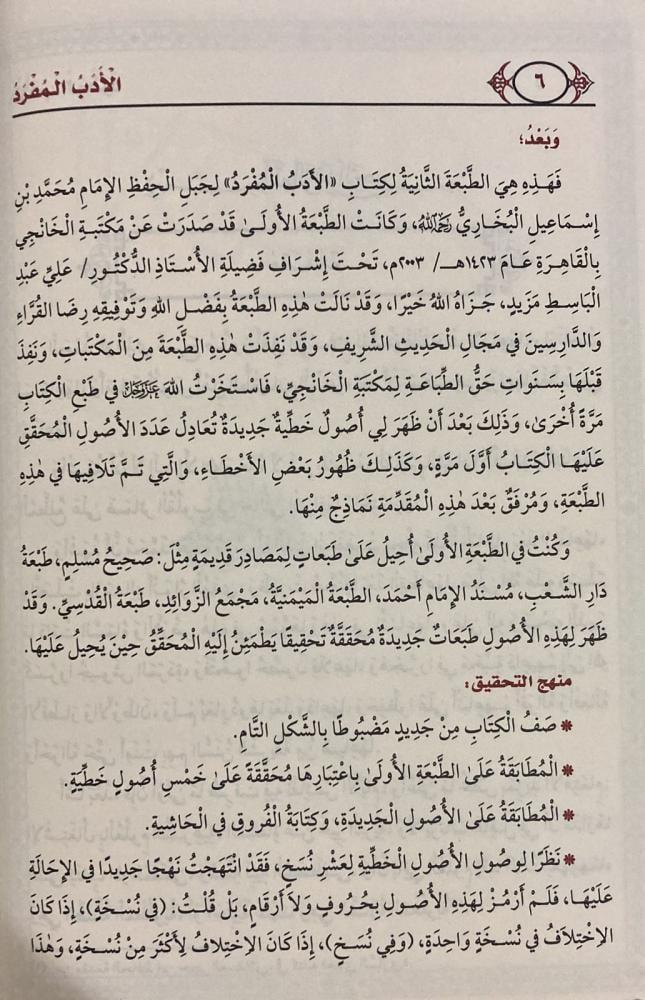 ٦
الْأَدَبُ الْمُفْرَدُ
وَبَعْدُ؛
فَهَذِهِ هِيَ الطَّبْعَةُ الثَّانِيَةُ لِكِتَابِ «الأَدَبُ الْمُفْرَدُ» لِجَبَلِ الْحِفْظِ الإِمَامِ مُحَمَّدِ بْنِ
إِسْمَاعِيل الْبُخَارِيُّ رَحِمَهُ اللهُ، وَكَانَتْ الطَّبْعَةُ الأُولَىٰ قَدْ صَدَرَتْ عَنْ مَكْتَبَةِ الْخَانْجِي
بِالْقَاهِرَةِ عَامَ ١٤٢٣هـ/ ٢٠٠٣م، تَحْتَ إِشْرَافِ فَضِيلَةِ الأُسْتَاذِ الدُّكْتُورِ/ عَلِيِّ عَبْدِ
الْبَاسِطِ مَزِيدٍ، جَزَاهُ اللهُ خَيْرًا، وَقَدْ نَالَتْ هٰذِهِ الطَّبْعَةُ بِفَضْلِ اللهِ وَتَوْفِيقِهِ رِضَا القُرَّاءِ
وَالدَّارِسِينَ فِي مَجَالِ الْحَدِيثِ الشَّرِيفِ، وَقَدْ نَفِذَتْ هٰذِهِ الطَّبْعَةَ مِنَ الْمَكْتَبَاتِ، وَنَفِذَ
قَبْلَهَا بِسَنَوَاتٍ حَقُّ الطِّبَاعَةِ لِمَكْتَبَةِ الْخَانْجِيِّ، فَاسْتَخَرْتُ اللهَ عَزَّ وَجَلَّ فِي طَبْعِ الْكِتَابِ
مَرَّةً أُخْرَىٰ، وَذَلِكَ بَعْدَ أَنْ ظَهَرَ لِي أُصُولٌ خَطِّيةٌ جَدِيدَةٌ تُعَادِلُ عَدَدَ الأُصُولِ الْمُحَقَّقِ
عَلَيْهَا الْكِتَابُ أَوَّلَ مَرَّةٍ، وَكَذَلِكَ ظُهُورُ بَعْضِ الأَخْطَاءِ، وَالَّتِي تَمَّ تَلَافِيهَا فِي هٰذِهِ
الطَّبْعَةِ، وَمُرْفَقٌ بَعْدَ هٰذِهِ الْمُقَدِّمَةِ نَمَاذِجٌ مِنْهَا.
وَكُنْتُ فِي الطَّبْعَةِ الأُولَىٰ أُحِيلُ عَلَىٰ طَبَعَاتٍ لِمَصَادِرَ قَدِيمَةٍ مِثْلَ: صَحِيحُ مُسْلِمٍ، طَبْعَةُ
دَارِ الشَّعْبِ، مُسْنَدُ الإِمَامِ أَحْمَدَ، الطَّبْعَةُ الْمَيْمَنِيَّةُ، مَجْمَعُ الزَّوَائِدِ، طَبْعَةُ الْقُدْسِيِّ. وَقَدْ
ظَهَرَ لِهٰذِهِ الأُصُولِ طَبَعَاتٌ جَدِيدَةٌ مُحَقَّقَةٌ تَحْقِيقًا يَطْمَئِنُ إِلَيْهِ الْمُحَقِّقُ حِيْنَ يُحِيلُ عَلَيْهَا.
منهج التحقيق:
* صَفُ الْكِتَابِ مِنْ جَدِيدٍ مَضْبُوطًا بِالشَّكْلِ التَّامِ.
* الْمُطَابَقَةُ عَلَىٰ الطَّبْعَةِ الأُولَىٰ بِاعْتِبَارِهَا مُحَقَّقَةً عَلَىٰ خَمْسِ أُصُولٍ خَطِّيَةٍ.
* الْمُطَابَقَةُ عَلَىٰ الأُصُولِ الْجَدِيدَةِ، وَكِتَابَةُ الْفُرُوقِ فِي الْحَاشِيةِ.
* نَظَرًا لِوصُولِ الأُصُولِ الْخَطِّيةِ لِعَشْرِ نُسَخٍ، فَقَدْ انْتَهَجْتُ نَهْجًا جَدِيدًا فِي الإِحَالَةِ
عَلَيْهَا، فَلَمْ أَرْمُزْ لِهَذِهِ الأُصُولِ بِحُرُوفٍ وَلَا أَرْقَامٍ، بَلْ قُلْتُ: (فِي نُسْخَةٍ)، إِذَا كَانَ
الإِخْتِلَافُ فِي نُسْخَةٍ وَاحِدَةٍ، (وَفِي نُسَخٍ)، إِذَا كَانَ الإِخْتِلَافُ لِأَكْثَرَ مِنْ نُسْخَةٍ، وَهٰذَا